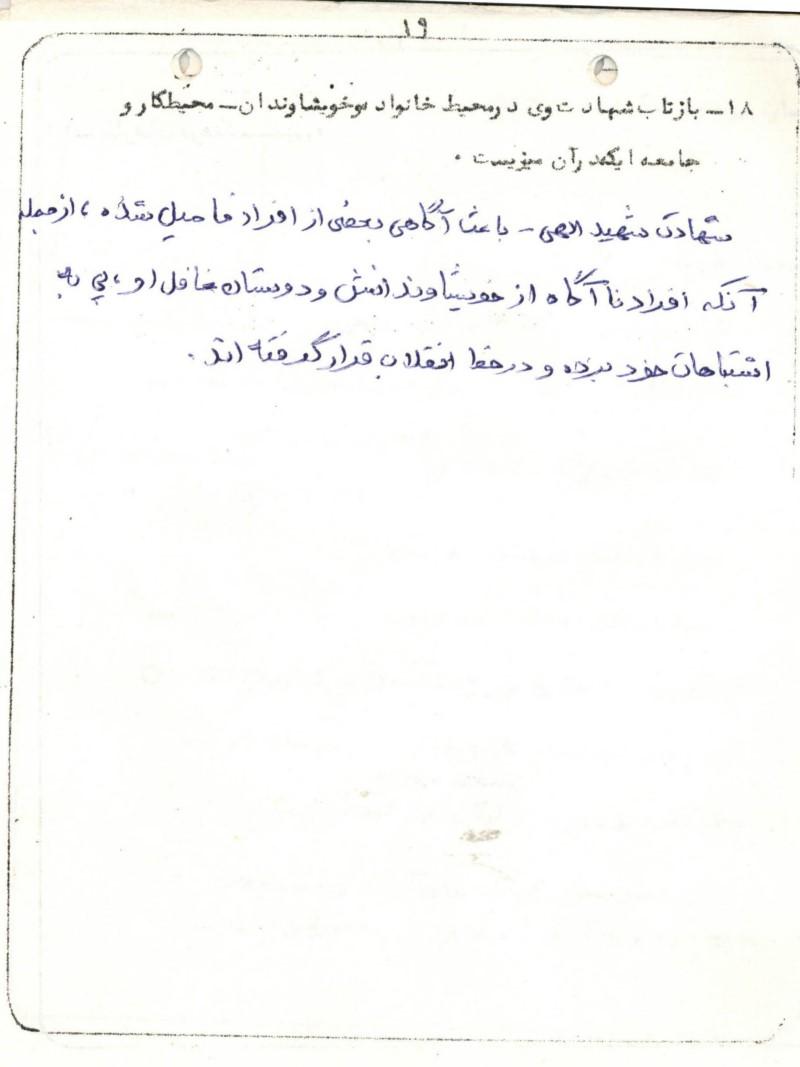 ۱۹
۱۸ـ بازتاب شهادت وی درمحیط خانواده وخویشاوندان ـ محیط کار و
جامعه ایکه در آن میزیست .
شهادت شهید الهی - باعث آگاهی بعضی از افراد فامیل شده ، از جمله
آنکه افراد ناآگاه از خویشاوندانش و دوستان غافل او ، پی به
اشتباهات خود برده و در خط انقلاب قرار گرفته اند .